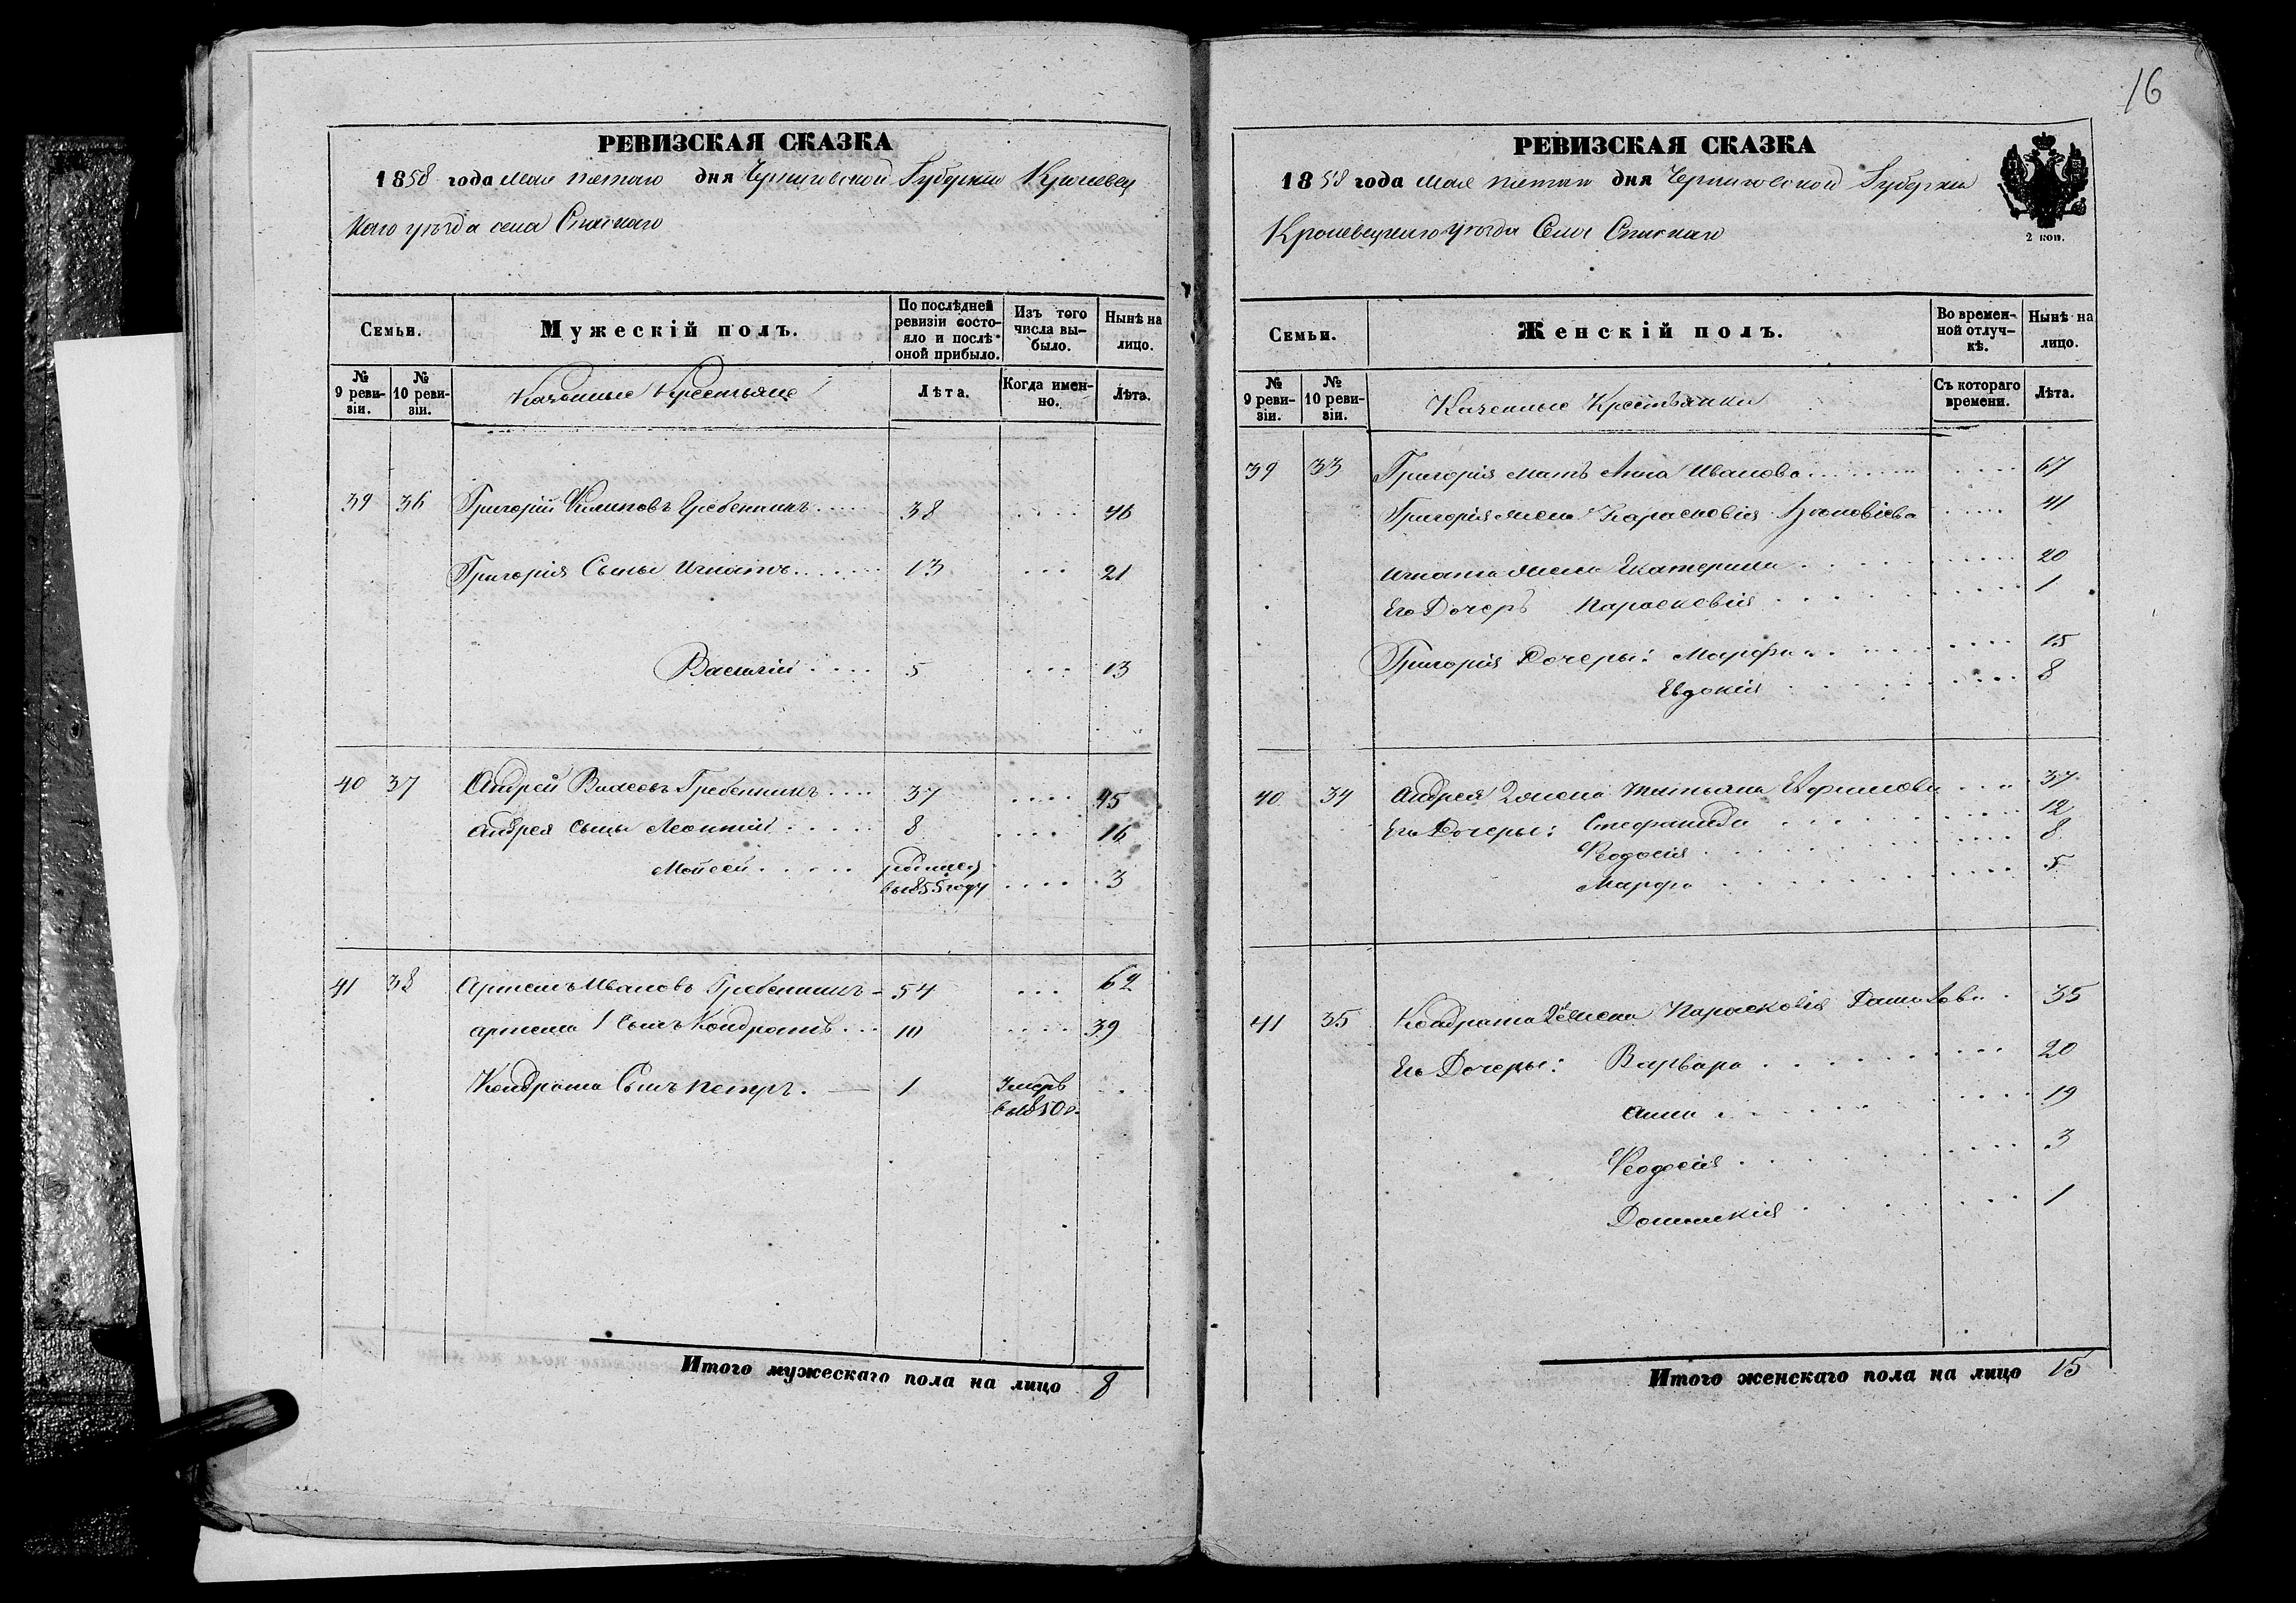 РЕВИЗСКАЯ СКАЗКА
1858 года Мая пятого дня Черниговской Губернии Кролевец
кого уѣзда села Спаскаго
Семьи.
Мужескій полъ.
По послѣдней ревизіи состо-
яло и послѣ оной прибыло.
Изъ того числа вы-
было.
Нынѣ на лицо.
№ 9 реви-
зіи.
№ 10 реви-
зіи.
Казенные Крестьяне
Лѣта.
Когда имен-
но.
Лѣта.
39 36 Григорій Филиповъ Гребенникъ 38 46
Григорія Сыны Игнатъ 13 21
Василій 5 13
40 37 Андрей Власовъ Гребенникъ 37 45
Андрея Сыны Леонтій 8 16
Мойсей родился
в 1855 году 3
41 38 Артемъ Ивановъ Гребенникъ 54 62
Артема 1 Сынъ Кондратъ 10 39
Кондрата Сынъ Петръ. 1 Умеръ
в 1850 г.
Итого мужескаго пола на лицо 8
16
РЕВИЗСКАЯ СКАЗКА
1858 года Мая пятого дня Черниговской Губернии
Кролевецкого уѣзда Села Спаскаго
2 коп.
Семьи.
Женскій полъ.
Во времен-
ной отлуч-
кѣ.
Нынѣ на лицо.
№ 9 реви-
зіи.
№ 10 реви-
зіи.
Казенные Крестьянки
Съ котораго времени.
Лѣта.
39 33 Григорія Мать Анна Иванова 67
Григорія Жена Парасковія 41
Игната Жена Екатерина 20
Его Дочерь Парасковія 1
Григорія Дочеры: Марфа 15
Евдокія 8
40 34 Андрея 2 Жена Татьяна Ефимова 37
Его Дочеры: Стефанида 12
Феодосія 8
Марфа 5
41 35 Кондрата 2 Жена Парасковія 35
Его Дочеры: Варвара 20
Анна 19
Феодосія 3
Домникія 1
Итого женскаго пола на лицо 15